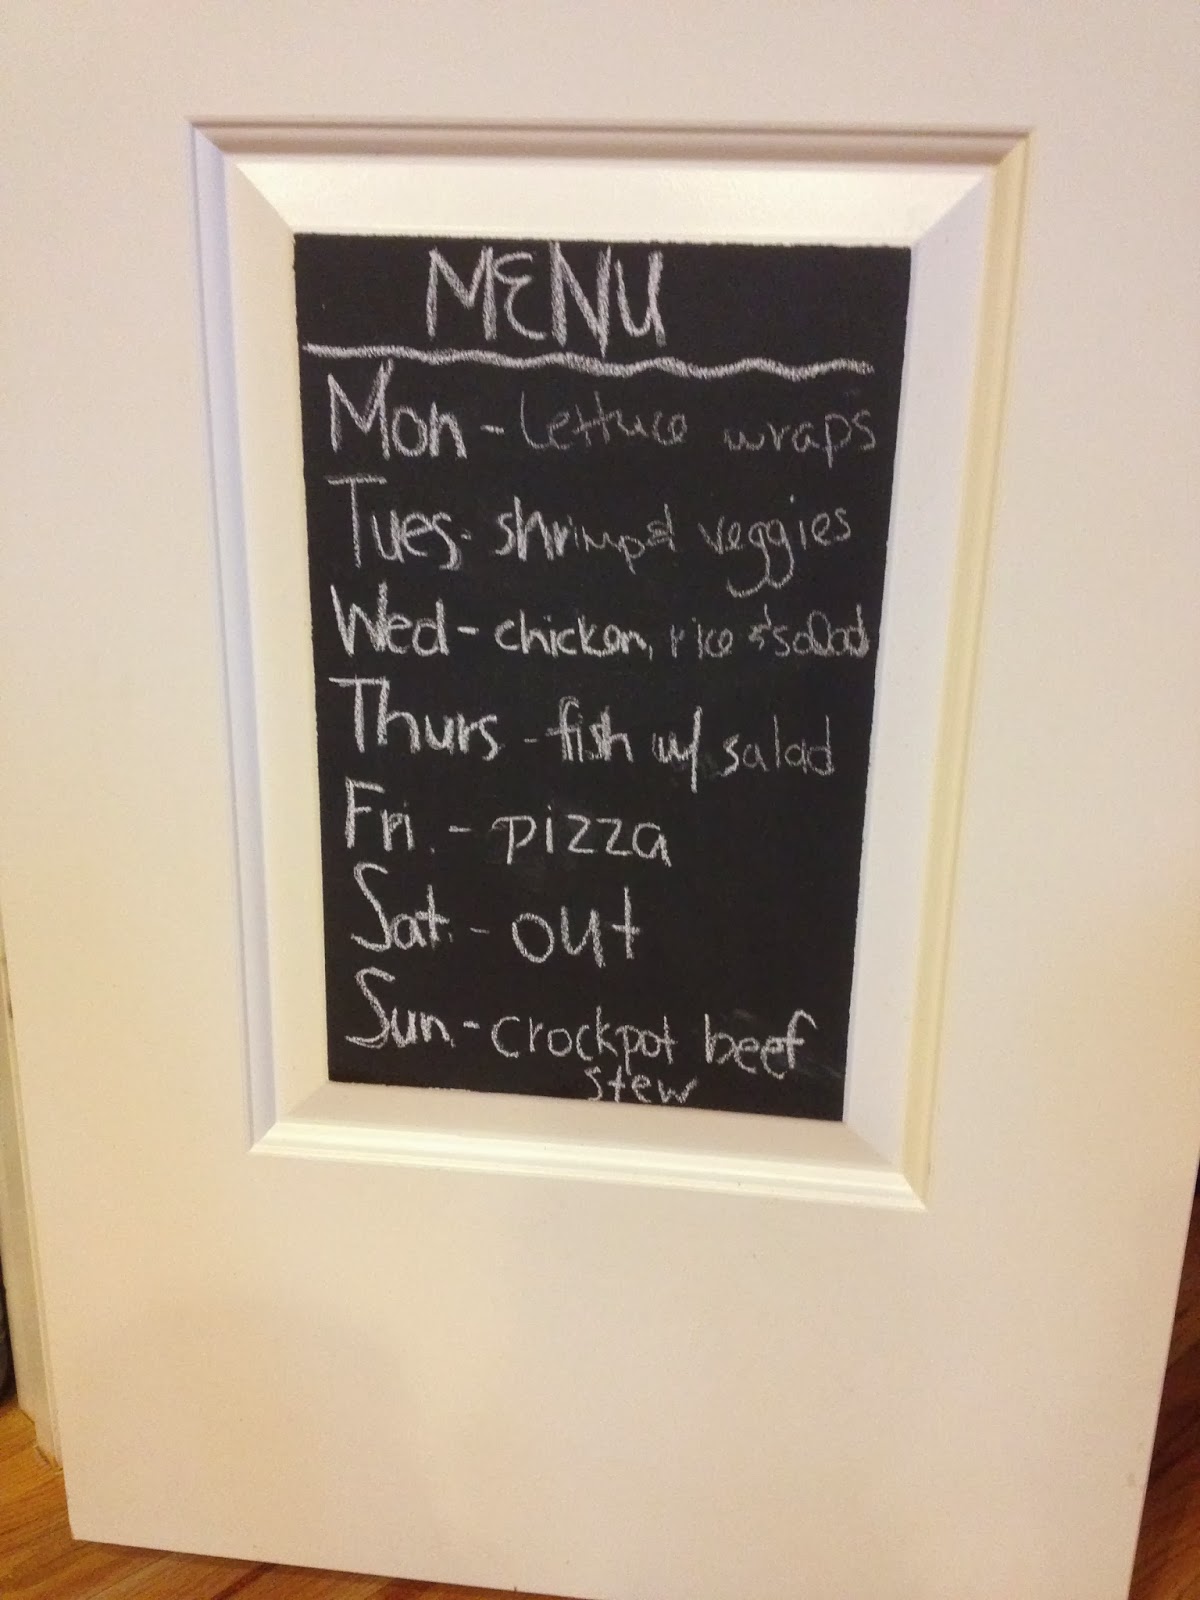 MENU
Mon - Lettuce wraps
Tues - shrimp & veggies
Wed - chicken, rice & salad
Thurs - fish w/ salad
Fri. - pizza
Sat. - out
Sun - crockpot beef
stew